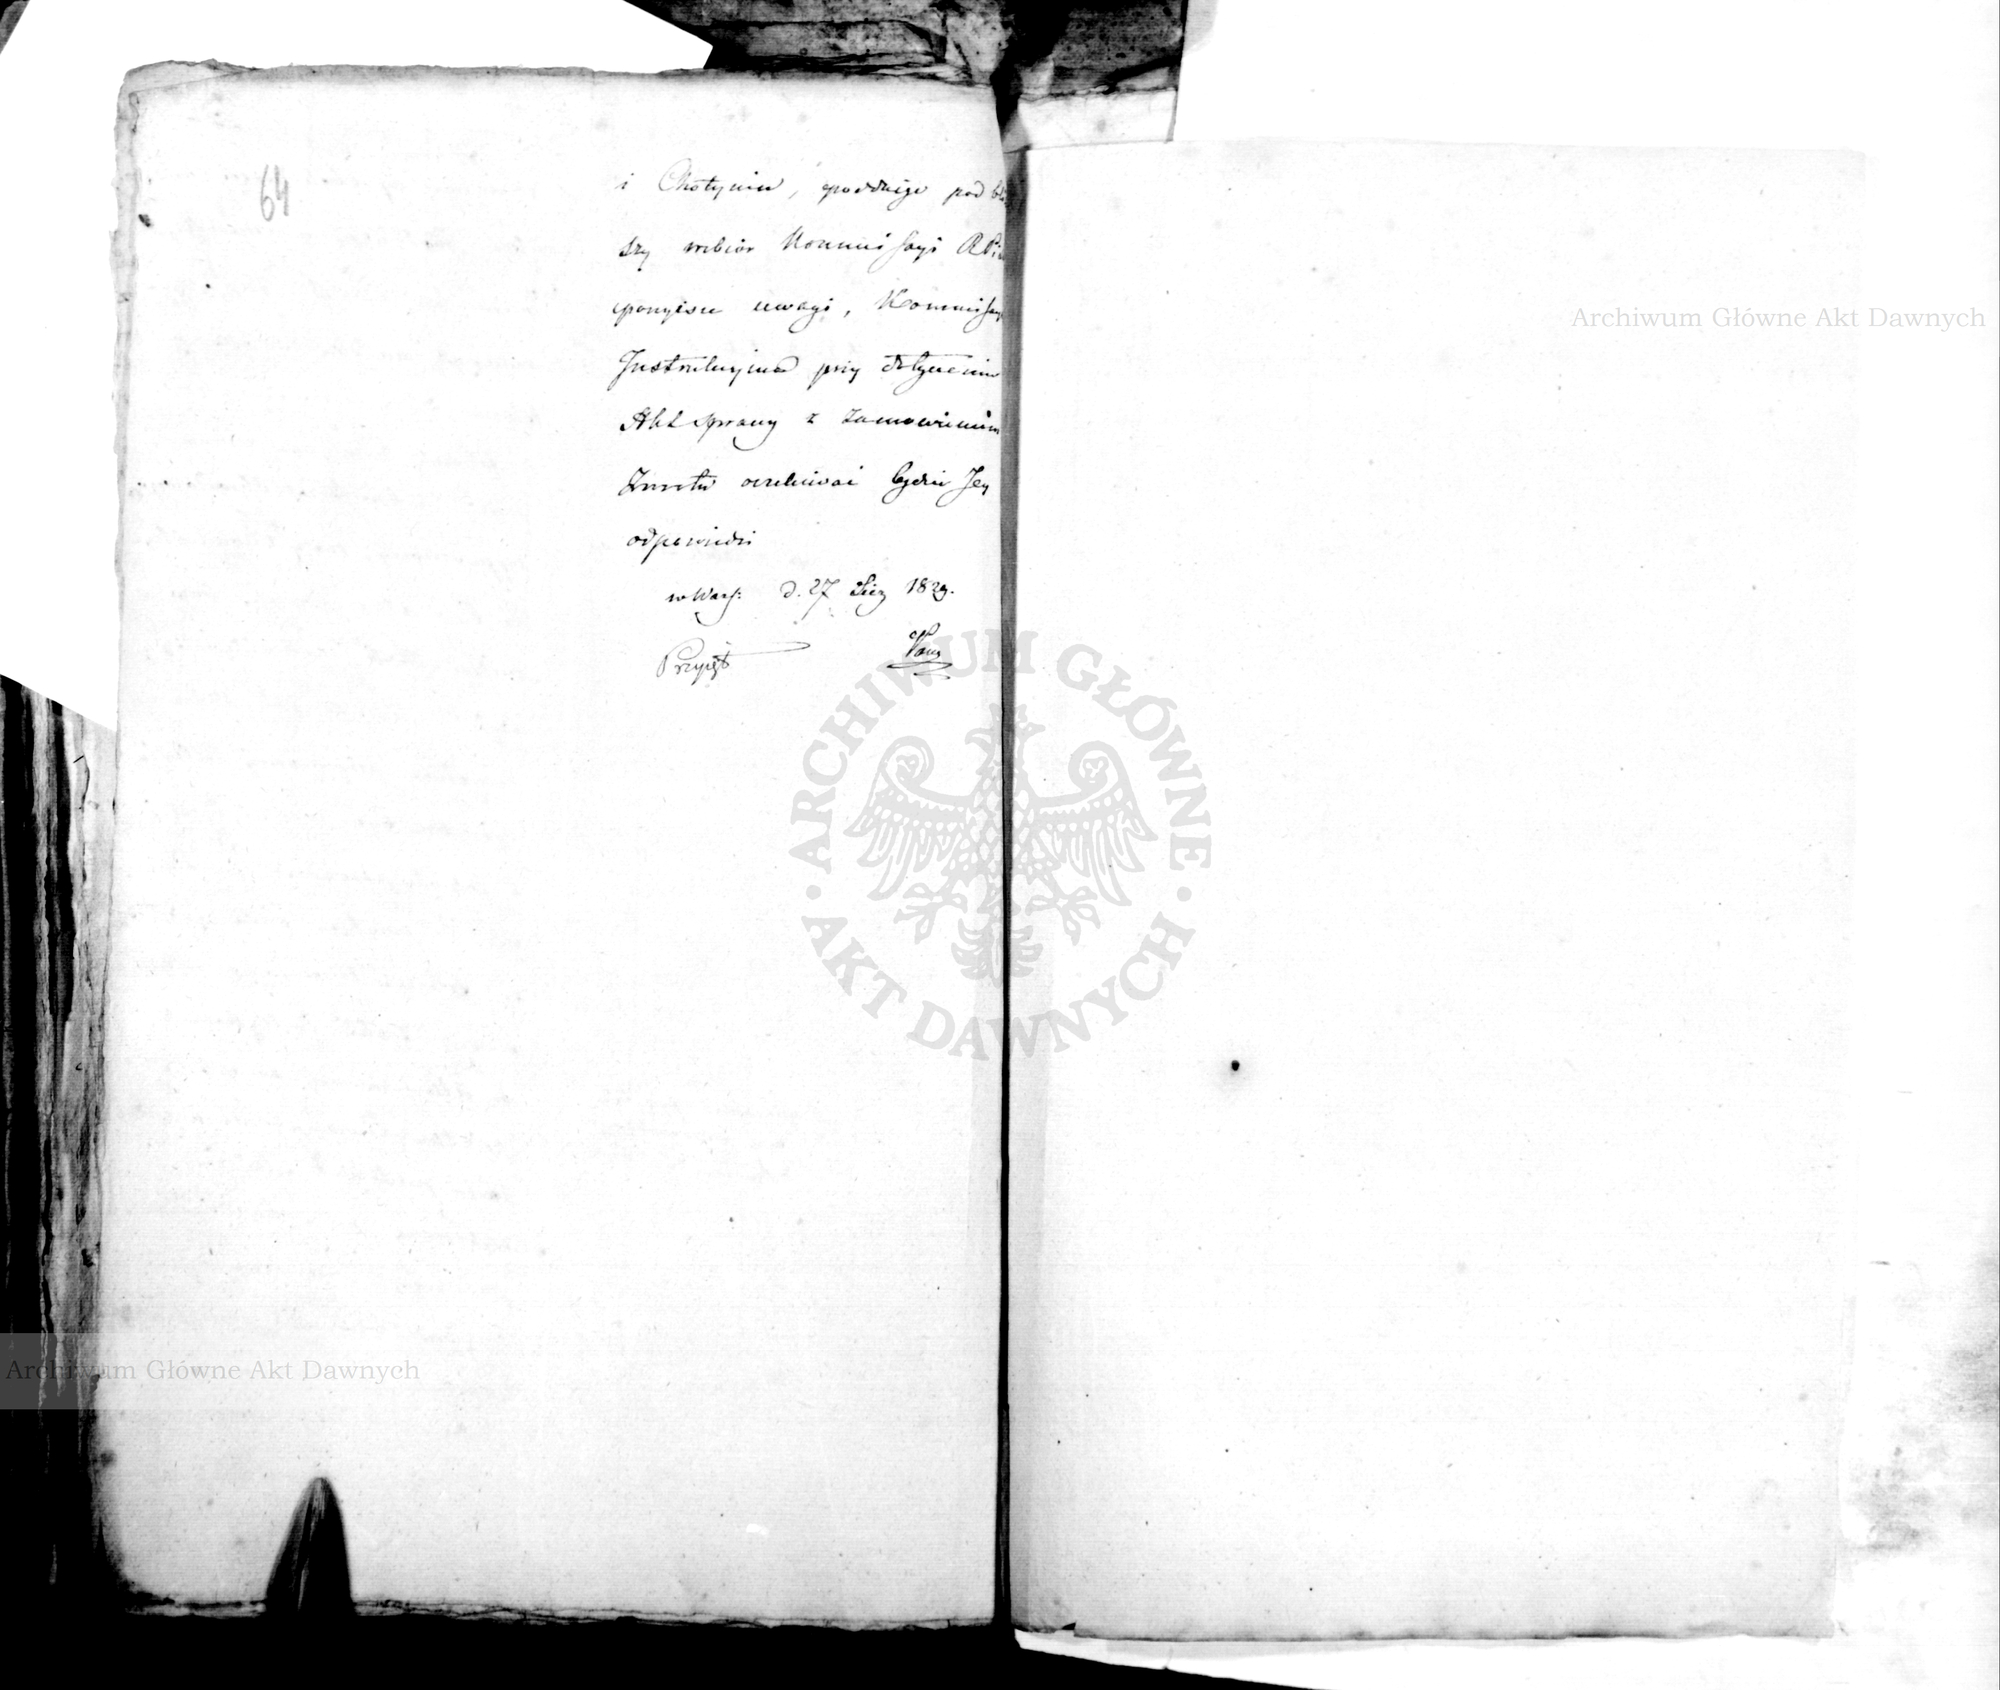 64
i Chotyniu, poddając pod bliż
szy rozbiór Kommissyi RP i
powyższe uwagi, Kommissya
Instrukcyina przy dołączeniu
Akt sprawy z zamówieniem
Zwrotu oczekiwać będzie Jey
odpowiedzi
w Warsz: d. 27 Stycz 1829.
Archiwum Główne Akt Dawnych
ARCHIWUM GŁÓWNE AKT DAWNYCH
Archiwum Główne Akt Dawnych